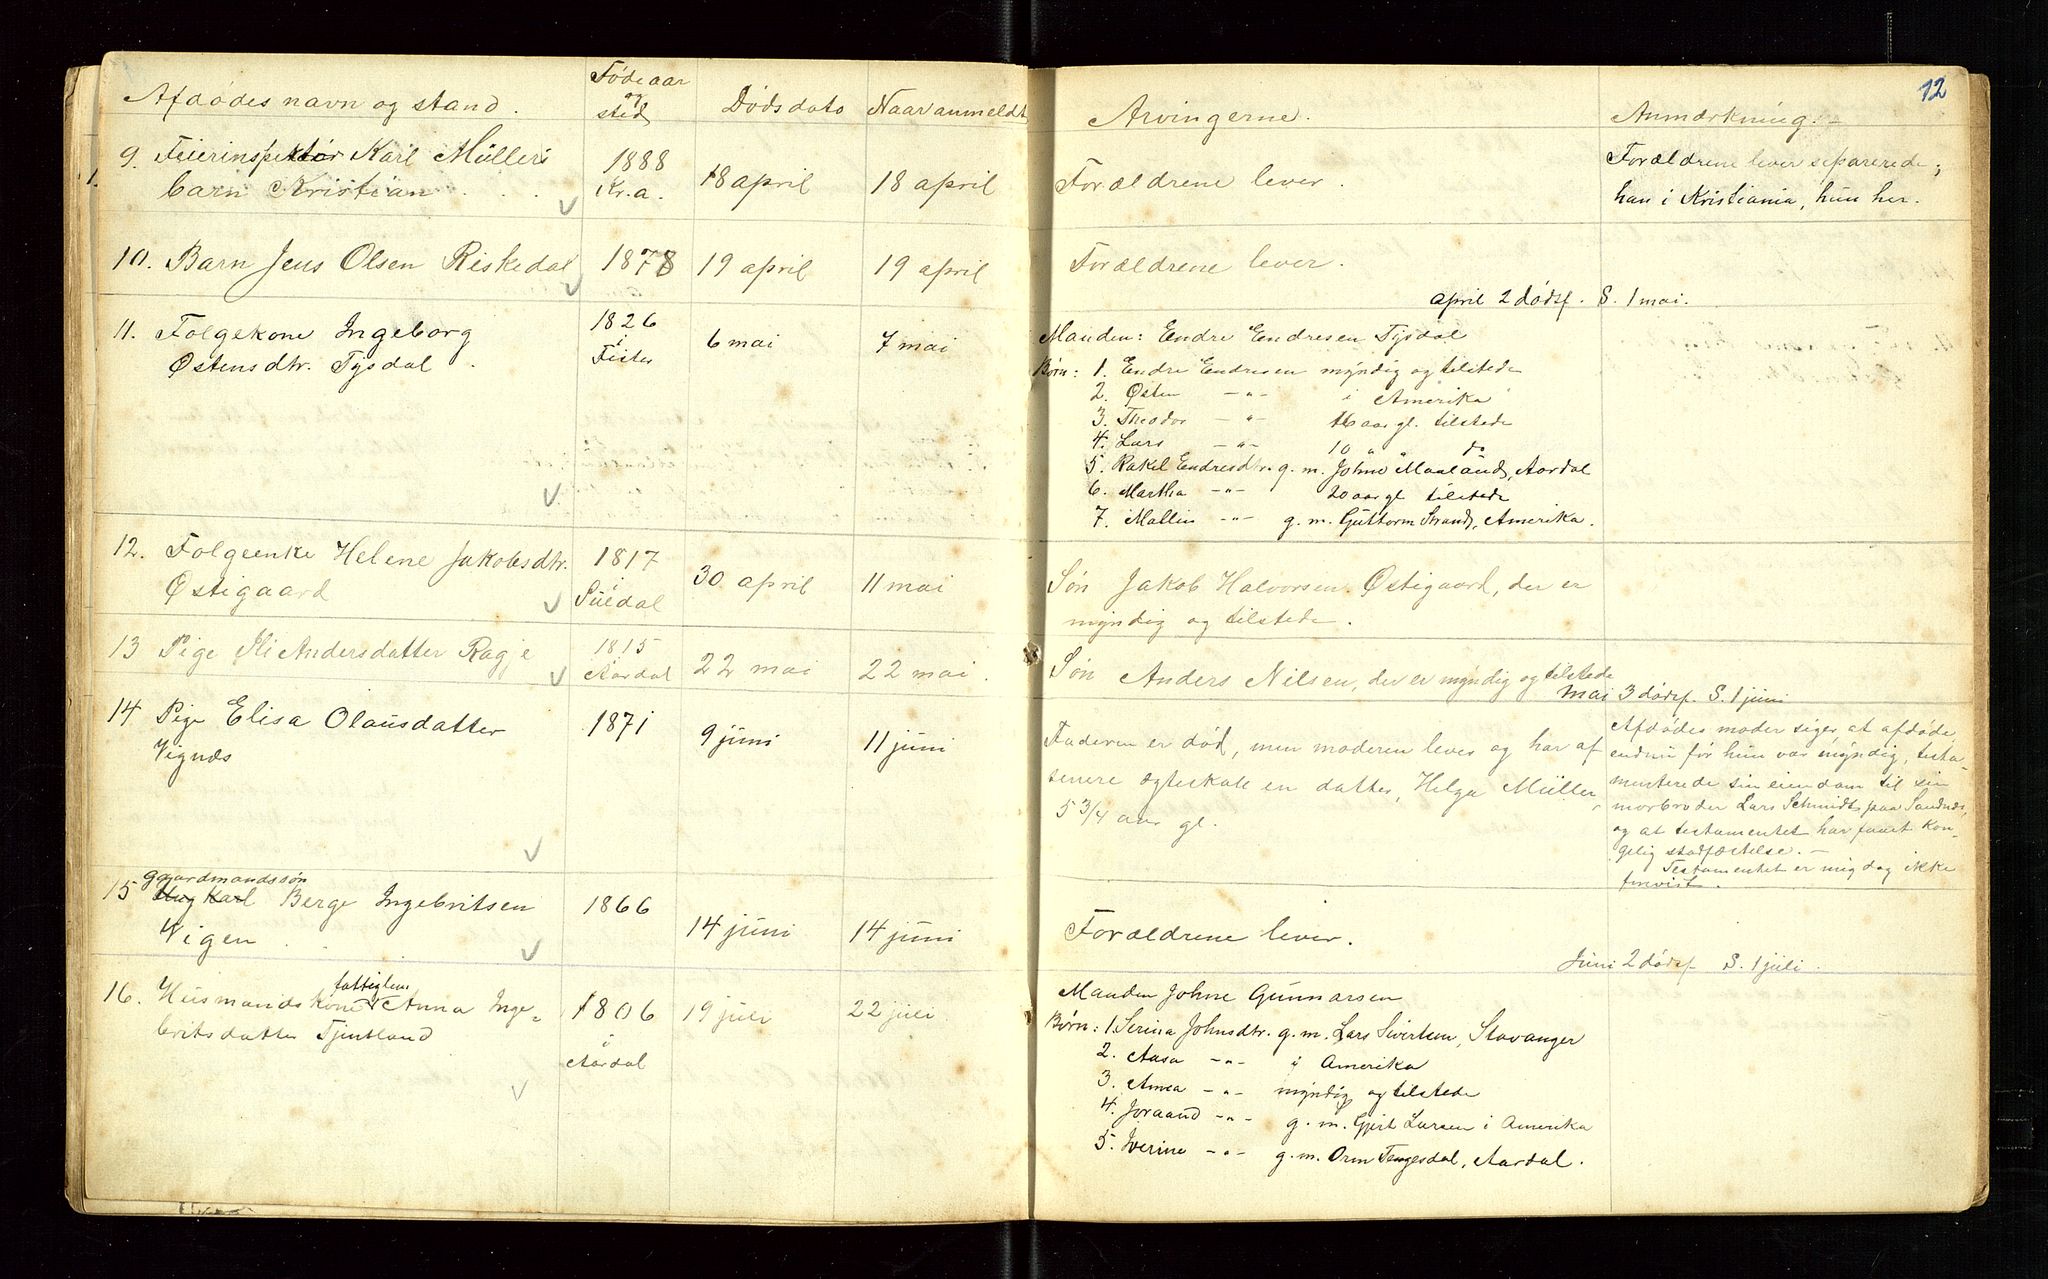 Afdødes navn og stand.
Fødeaar
og
sted
Dødsdato
Naar anmeldt
9. Feierinspektør Karl Müllers
barn Kristian . . .
1888
Kr.a.
18 april
18 april
10. Barn Jens Olsen Riskedal
1878
19 april
19 april
11. Folgekone Ingeborg
Østensdtr. Tysdal .
1826
i
Fister
6 mai
7 mai
12. Folgeenke Helene Jakobsdtr.
Østigaard
1817
i
Suldal
30 april
11 mai
13 Pige Ili Andersdatter Ragje
1815
Aardal
22 mai
22 mai.
14 Pige Elisa Olausdatter
Vignæs
1871
9 juni
11 juni
gaardmandssøn
15 Berge Ingebritsen
Vigen . .
1866
14 juni
14 juni
fattiglem
16. Husmandskone Anna Inge-
britsdatter Tjentland
1806
i
Aardal
19 juli
22 juli
12
Arvingerne.
Anmærkning.
Forældrene lever.
Forældrene lever separerede;
han i Kristiania, hun her.
Forældrene lever.
april 2 dødsf. S. 1 mai.
Manden: Endre Endresen Tysdal
Børn: 1. Endre Endresen myndig og tilstede
2. Østen -"- i Amerika
3. Theodor -"- 16 aar gl. tilstede
4. Lars -"- 10 " " do
5. Rakel Endresdtr. g. m. Johne Maaland, Aardal
6. Martha -"- 20 aar gl tilstede
7. Mallin -"- g. m. Guttorm Strand, Amerika.
Søn Jakob Halvorsen Østigaard, der er
myndig og tilstede.
Søn Anders Nilsen, der er myndig og tilstede
Mai 3 dødsf. S. 1 juni
Faderen er død, men moderen lever og har af
senere ægteskab en datter, Helga Müller,
5 3/4 aar gl.
Afdødes moder siger, at afdøde,
endnu før hun var myndig, testa-
menterede sin eiendom til sin
morbroder Lars Schmidt paa Sandnæs,
og at testamentet har faaet kon-
gelig stadfæstelse. -
Testamentet er mig dog ikke
forevist.
Forældrene lever.
Juni 2 dødsf S. 1 juli.
Manden Johne Gunnarsen
Børn: 1. Serina Johnsdtr. g. m. Lars Sivertsen, Stavanger
2. Aasa -"- i Amerika
3. Anna -"- myndig og tilstede
4. Joraand -"- g. m. Gjert Larsen i Amerika
5. Iverine -"- g. m. Orm Tengesdal, Aardal.